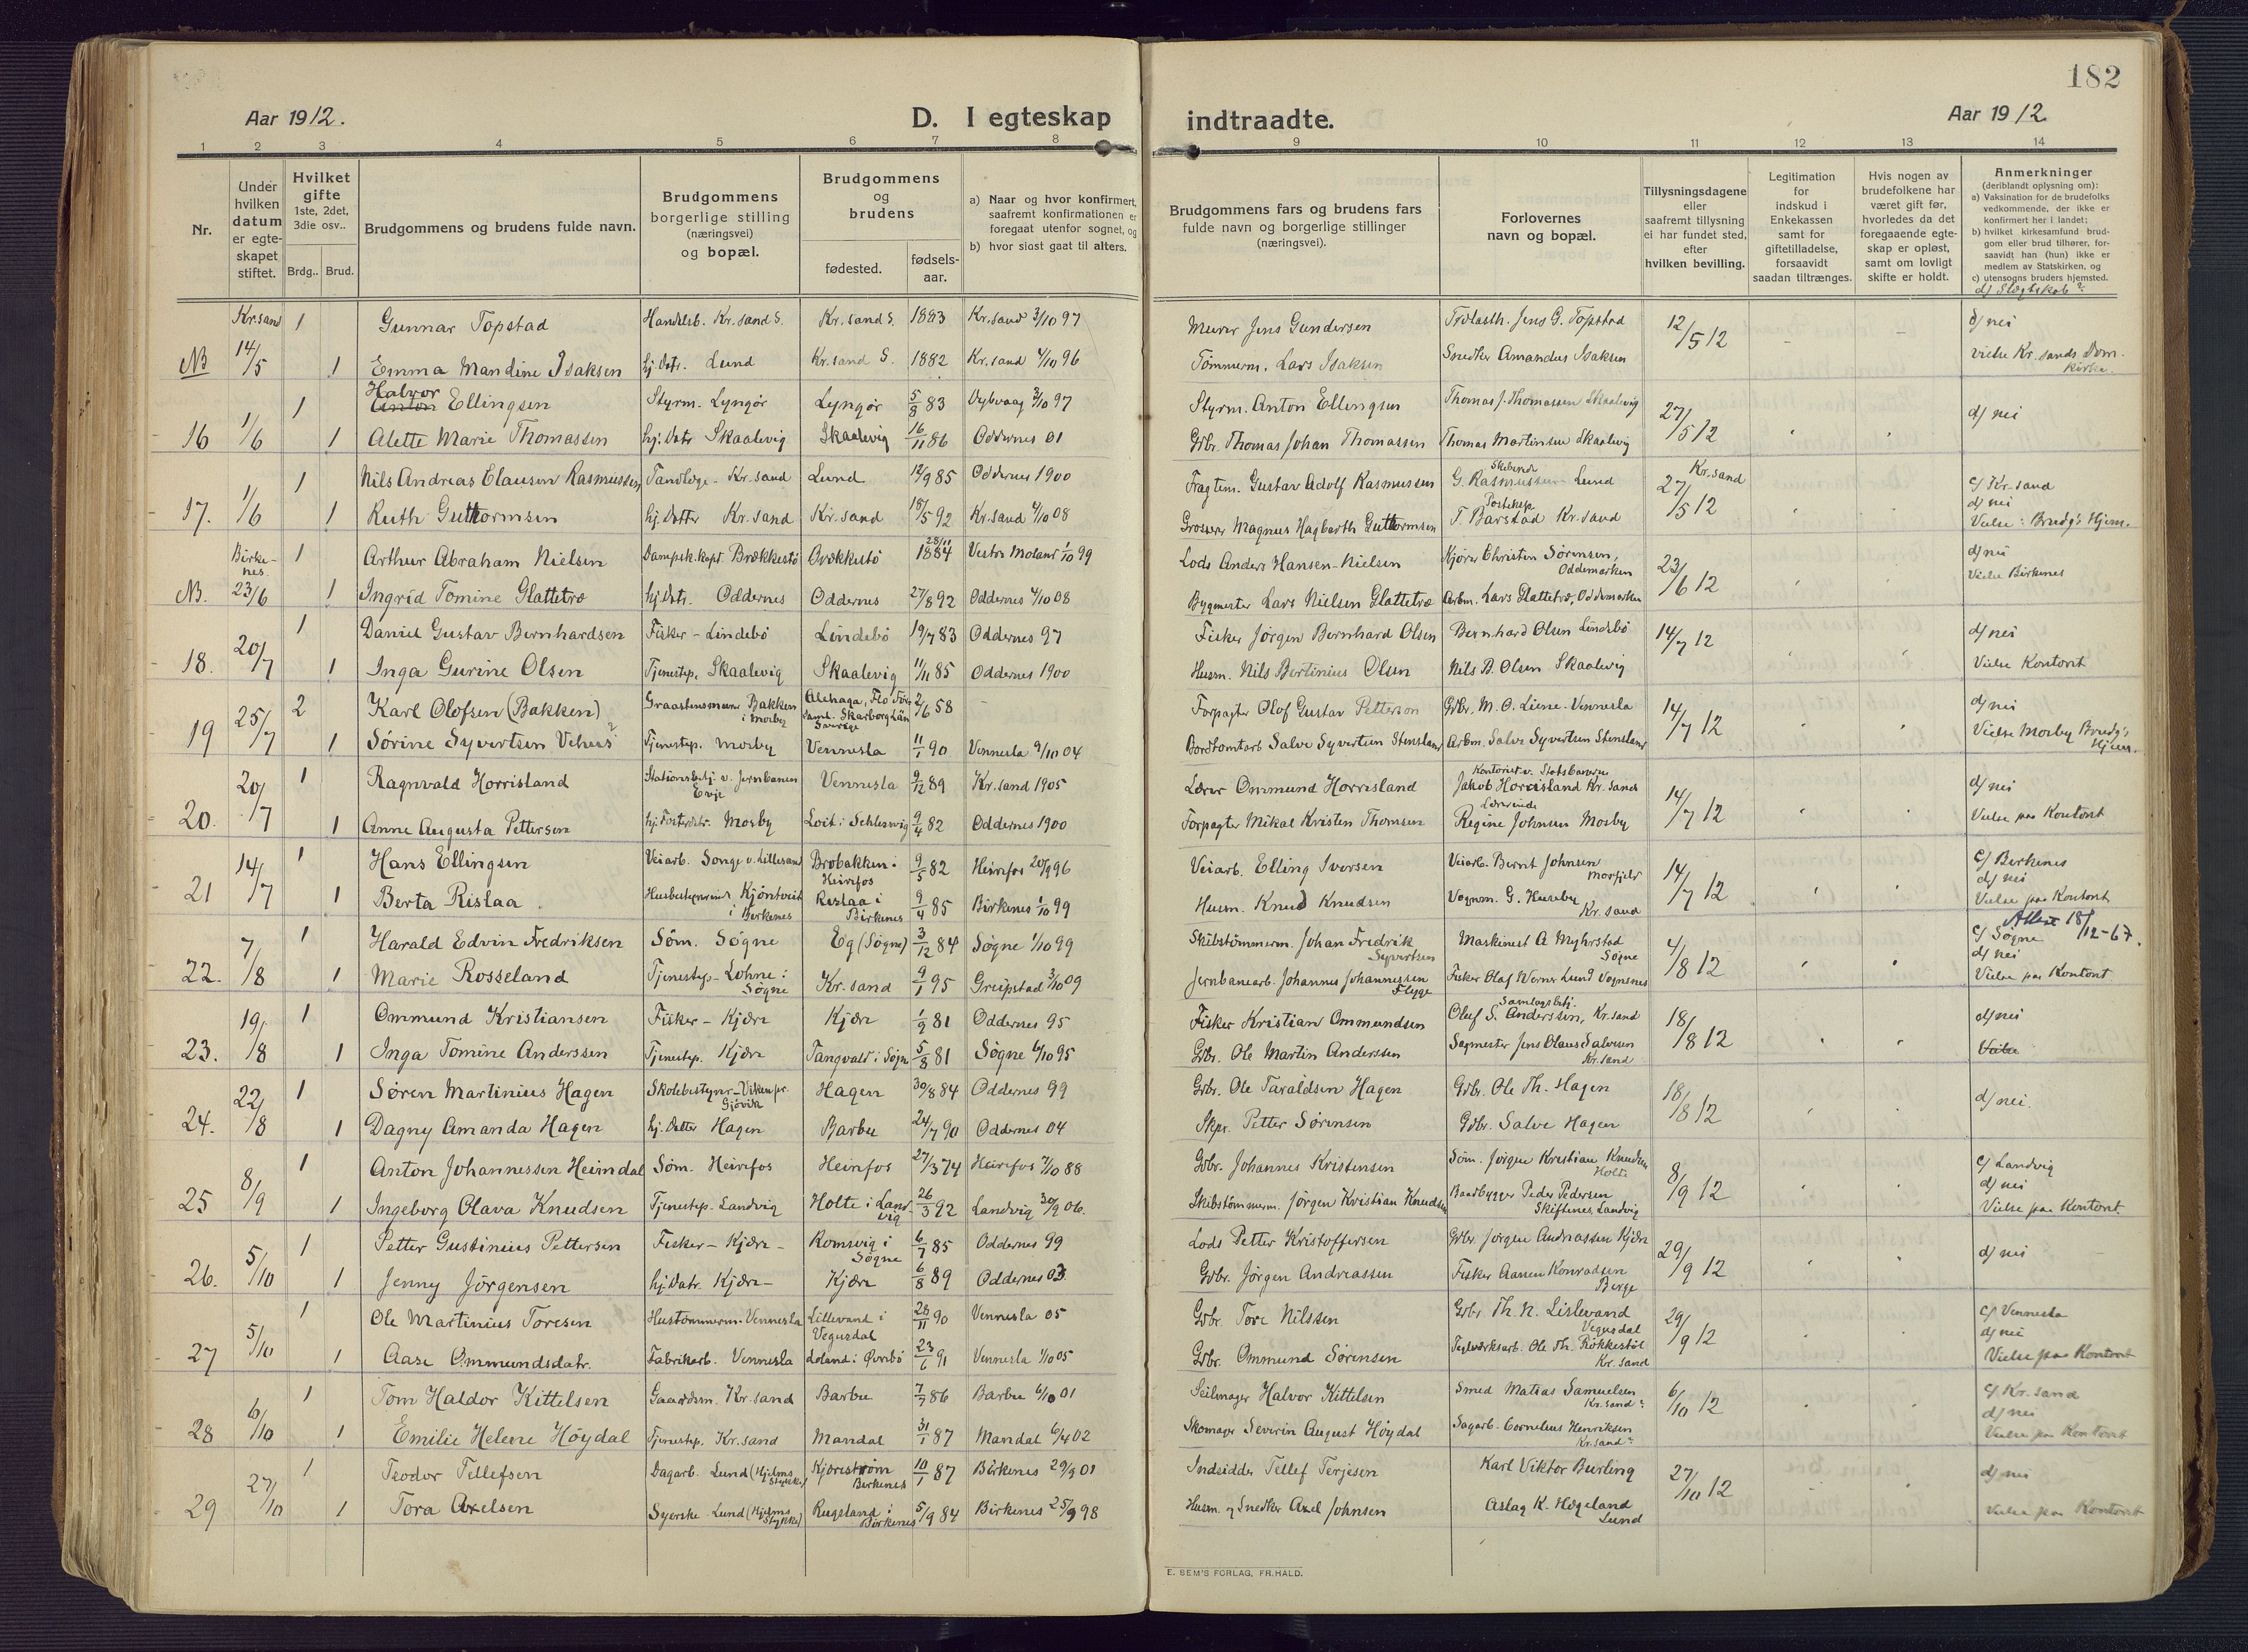 182
Aar 1912.
D. I egteskap indtraadte.
Aar 1912.
1 2 3 4 5 6 7 8 9 10 11 12 13 14
Nr.
Under hvilken datum er egteskapet stiftet.
Hvilket gifte 1ste, 2det, 3die osv..
Brdg.. Brud.
Brudgommens og brudens fulde navn.
Brudgommens borgerlige stilling (næringsvei) og bopæl.
Brudgommens og brudens
fødested.
fødsels-aar.
a) Naar og hvor konfirmert, saafremt konfirmationen er foregaat utenfor sognet, og
b) hvor sidst gaat til alters.
Brudgommens fars og brudens fars fulde navn og borgerlige stillinger (næringsvei).
Forlovernes navn og bopæl.
Tillysningsdagene eller saafremt tillysning ei har fundet sted, efter hvilken bevilling.
Legitimation for indskud i Enkekassen samt for giftetilladelse, forsaavidt saadan tiltrænges.
Hvis nogen av brudefolkene har været gift før, hvorledes da det foregaaende egteskap er opløst, samt om lovligt skifte er holdt.
Anmerkninger
(deriblandt oplysning om):
a) Vaksination for de brudefolks vedkommende, der ikke er konfirmert her i landet;
b) hvilket kirkesamfund brudgom eller brud tilhører, forsaavidt han (hun) ikke er medlem av Statskirken, og
c) utensogns bruders hjemsted.
d) Slægtskab?
Kr.sand 1 Gunnar Topstad Handelsb. Kr.sand S. Kr.sand S. 1883 Kr.sand 3/10 97 Murer Jens Gundersen Trælasth. Jens G. Topstad 12/5 12 d/ nei
NB 14/5 1 Emma Mandine Isaksen hj. Datr. Lund Kr.sand S. 1882 Kr.sand 4/10 96 Tømmerm. Lars Isaksen Snedker Amandus Isaksen vielse Kr.sands Domkirke.
1 Halvor Anton Ellingsen Styrm. Lyngør Lyngør 5/8 83 Dybvaag 3/10 97 Styrm. Anton Ellingsen Thomas J. Thomassen Skaalevig 27/5 12 d/ nei
16 1/6 1 Alette Marie Thomassen hj. Datr Skaalevig Skaalevig 16/11 86 Oddernes 01 Grbr. Thomas Johan Thomassen Thomas Martinsen Skaalevig
1 Nils Andreas Clausen Rasmussen Tandlæge - Kr.sand Lund 12/9 85 Oddernes 1900 Fragtem. Gustav Adolf Rasmussen G. Rasmussen Lund 27/5 12 Kr.sand c/ Kr.sand d/ nei
17. 1/6 1 Ruth Guttormsen hj. Datter Kr.sand Kr.sand 18/5 92 Kr.sand 4/10 08 Grosserer Magnus Hagbarth Guttormsen T. Barstad Kr.sand Vielse: Brudg's Hjem.
Birkenes 1 Arthur Abraham Nielsen Dampsk.kapt. Brækkestø Brækkestø 28/11 1884 Vestre Moland 1/10 99 Lods Anders Hansen-Nielsen Kjører Christen Sørensen, Oddemarken 23/6 12 d/ nei
NB. 23/6 1 Ingrid Tomine Glattetræ hj. Datr. Oddernes Oddernes 27/8 92 Oddernes 4/10 08 Bygmester Lars Nielsen Glattetræ Arbm. Lars Glattetræ, Oddemarken Vielse Birkenes
1 Daniel Gustav Bernhardsen Fisker - Lindebø Lindebø 19/7 83 Oddernes 97 Fisker Jørgen Bernhard Olsen Bernhard Olsen Lindebø 14/7 12 d/ nei
18. 20/7 1 Inga Gurine Olsen Tjenestep. Skaalevig Skaalevig 11/11 85 Oddernes 1900 Husm. Nils Bertinius Olsen Nils B. Olsen Skaalevig Vielse Kontoret
2 Karl Olofsen (Bakken) Graastensmurer Bakken i Mosby Alehaga, Flo Førsaml. Skarborg Län Sverige 2/6 58 - Forpagter Olof Gustav Petterson Grbr. M. O. Liene-Vennesla 14/7 12 d/ nei
19 25/7 1 Sørine Syvertsen Vehus? Tjenestep. Mosby Vennesla 11/1 90 Vennesla 9/10 04 Bordtomtarb Salve Syvertsen Stensland Arbm. Salve Syvertsen Stensland Vielse Mosby Brudg's Hjem.
1 Ragnvald Horrisland Stationsbetj. v. Jernbanen Evje Vennesla 9/12 89 Kr.sand 1905 Lærer Ommund Horrisland Kontorist v. Statsbanerne Jakob Horrisland Kr.sand 14/7 12 d/ nei
20. 20/7 1 Anne Augusta Pettersen hj. Fosterdatr. Mosby Loit i Schleswig 9/4 82 Oddernes 1900 Forpagter Mikal Kristen Thomsen Lærerinde Regine Johnsen Mosby Vielse paa Kontoret
1 Hans Ellingsen Veiarb. Songe v. Lillesand Brobakken i Heirefos 9/5 82 Heirefos 20/9 96 Veiarb. Elling Iversen Veiarb. Bernt Johnsen Mosfjeld 14/7 12 c/ Berkenes d/ nei
21 14/7 1 Berta Rislaa Husbestyrerinde Kjøntveit i Berkenes Rislaa i Birkenes 9/4 85 Birkenes 1/10 99 Husm. Knud Knudsen Vognm. G. Huseby Kr.sand Vielse paa Kontoret
1 Harald Edvin Fredriksen Søm. Søgne Eg (Søgne) 3/12 84 Søgne 1/10 99 Skibstømmerm. Johan Fredrik Syvertsen Maskinist A Myhrstad Søgne 4/8 12 Attest 18/12-67. c/ Søgne d/ nei
22. 7/8 1 Marie Rosseland Tjenestep - Lohne i Søgne Kr.sand 9/1 95 Greipstad 3/10 09 Jernbanearb. Johannes Johannessen Flygge Fisker Olaf Werner Lund Vognsnes Vielse paa Kontoret
1 Ommund Kristiansen Fisker - Kjære Kjære 1/9 81 Oddernes 95 Fisker Kristian Ommundsen Samlagsbetj. Oluf S. Anderssen, Kr.sand 18/8 12 d/ nei
23. 19/8 1 Inga Tomine Anderssen Tjenestep. Kjære Tangvald i Søgne 5/8 81 Søgne 6/10 95 Grbr. Ole Martin Anderssen Sagmester Jens Olaus Salvesen Kr.sand Vielse
1 Søren Martinius Hagen Skolebestyrer - Viken pr. Gjøvik Hagen 30/8 84 Oddernes 99 Grbr. Ole Taraldsen Hagen Grbr. Ole Th. Hagen 18/8 12 d/ nei.
24. 22/8 1 Dagny Amanda Hagen hj. Datter Hagen Barbu 24/7 90 Oddernes 04 Skpr. Petter Sørensen Grbr. Salve Hagen
1 Anton Johannessen Heimdal Søm. Heirefos Heirefos 27/3 74 Heirefos 7/10 88 Grbr. Johannes Kristensen Søm. Jørgen Kristian Knudsen Holte 8/9 12 c/ Landvig d/ nei
25 8/9 1 Ingeborg Olava Knudsen Tjenestep. Landvig Holte i Landvig 26/3 92 Landvig 30/9 06. Skibstømmerm. Jørgen Kristian Knudsen Baadbygger Peder Pedersen Skiftenes, Landvig Vielse paa Kontoret.
1 Petter Gustinius Pettersen Fisker - Kjære - Romsvig i Søgne 6/7 85 Oddernes 99 Lods Petter Kristoffersen Grbr Jørgen Andreassen Kjære 29/9 12 d/ nei
26. 5/10 1 Jenny Jørgensen hj. Datr. Kjære - Kjære 6/8 89 Oddernes 03 Grbr. Jørgen Andreassen Fisker Aanen Konradsen Berge
1 Ole Martinius Toresen Hustømmerm. Vennesla Lillevand i Vegusdal 28/11 90 Vennesla 05 Grbr. Tore Nilssen Grbr. Th. N. Lislevand Vegusdal 29/9 12 c/ Vennesla d/ nei
27 5/10 1 Aase Ommundsdatr. Fabrikarb. Vennesla Loland i Øvrebø 23/6 91 Vennesla 1/10 05 Grbr. Ommund Sørensen Teglværksarb. Ole Th. Røkkestøl Kr.sand Vielse paa Kontoret
1 Tom Haldor Kittelsen Gaardsm. Kr.sand Barbu 7/7 86 Barbu 6/10 01 Seilmager Halvor Kittelsen Smed Matias Samuelsen Kr.sand? 6/10 12 c/ Kr.sand d/ nei
28 6/10 1 Emilie Helene Høydal Tjenestep. Kr.sand Mandal 31/1 87 Mandal 6/4 02 Skomager Severin August Høydal Sagarb. Cornelius Henriksen Kr.sand? Vielse paa Kontoret
1 Teodor Tellefsen Dagarb. Lund (Hjelms Stykke) Kjærestrøm Berkenes 10/1 87 Birkenes 29/9 01 Indsidder Tellef Terjesen Karl Viktor Burling 27/10 12 d/ nei
29 27/10 1 Tora Axelsen Syerske Lund (Hjelms Stykke) Rugsland i Birkenes 5/9 84 Birkenes 25/9 98 Husm. og Snedker Axel Johnsen Aslag K. Hægeland Lund Vielse paa Kontoret
E. SEM'S FORLAG, FR.HALD.